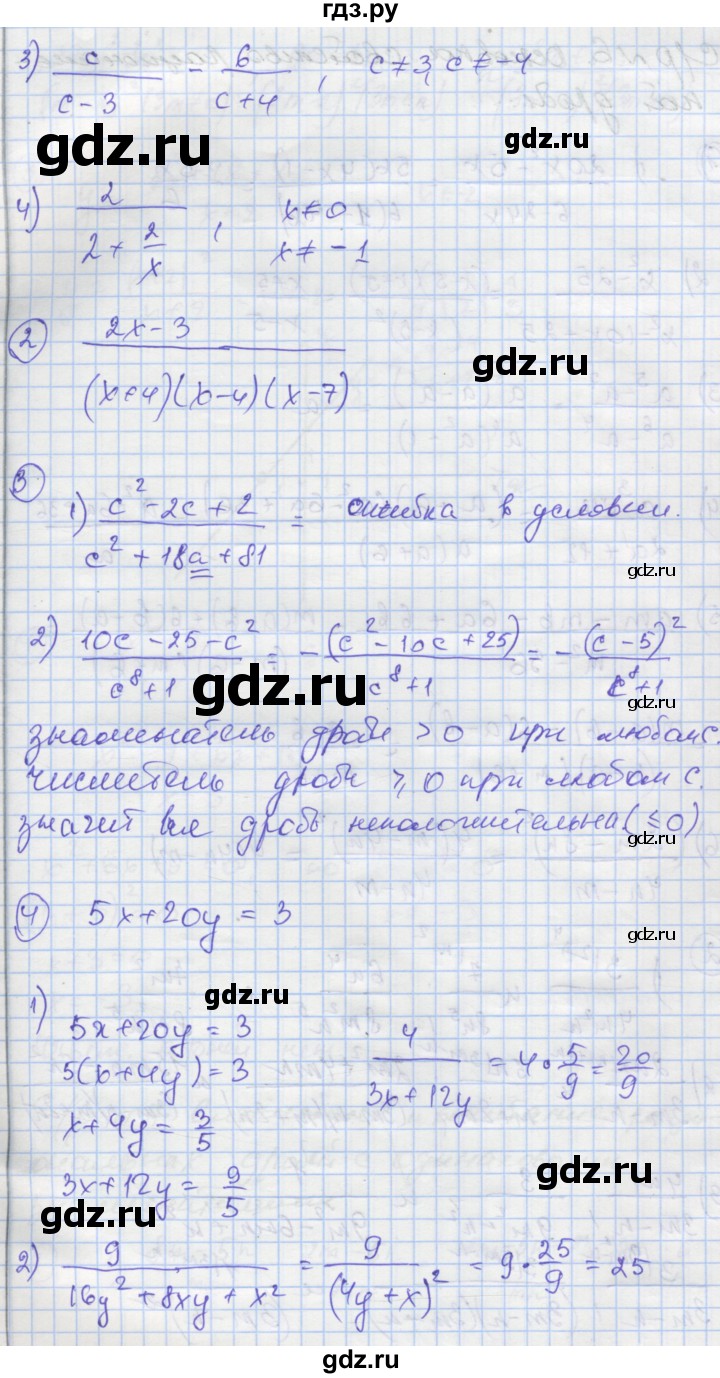 гдз.ру
3) c/(c-3) - 6/(c+4), c≠3, c≠-4
gdz.ru
gdz.ru
4) 2/(2+2/x), x≠0
x≠-1
gdz.ru
2 (2x-3)/((x+4)(x-4)(x-7))
gdz.ru
3
1) (c²-2c+2)/(c²+18a+81) = ошибка в условии.
gdz.ru
gdz.ru
2) (10c-25-c²)/(c⁸+1) = -(c²-10c+25)/(c⁸+1) = -(c-5)²/(c⁸+1)
gdz.ru
gdz.ru
знаменатель дроби >0 при любом c.
числитель дроби ≥0 при любом c.
значит вся дробь неположительна (≤0)
gdz.ru
4 5x+20y=3
gdz.ru
gdz.ru
1) 5x+20y=3
5(x+4y)=3
4/(3x+12y) = 4·5/9 = 20/9
gdz.ru
x+4y=3/5
3x+12y=9/5
gdz.ru
gdz.ru
2) 9/(16y²+8xy+x²) = 9/(4y+x)² = 9·25/9 = 25
gdz.ru
gdz.ru